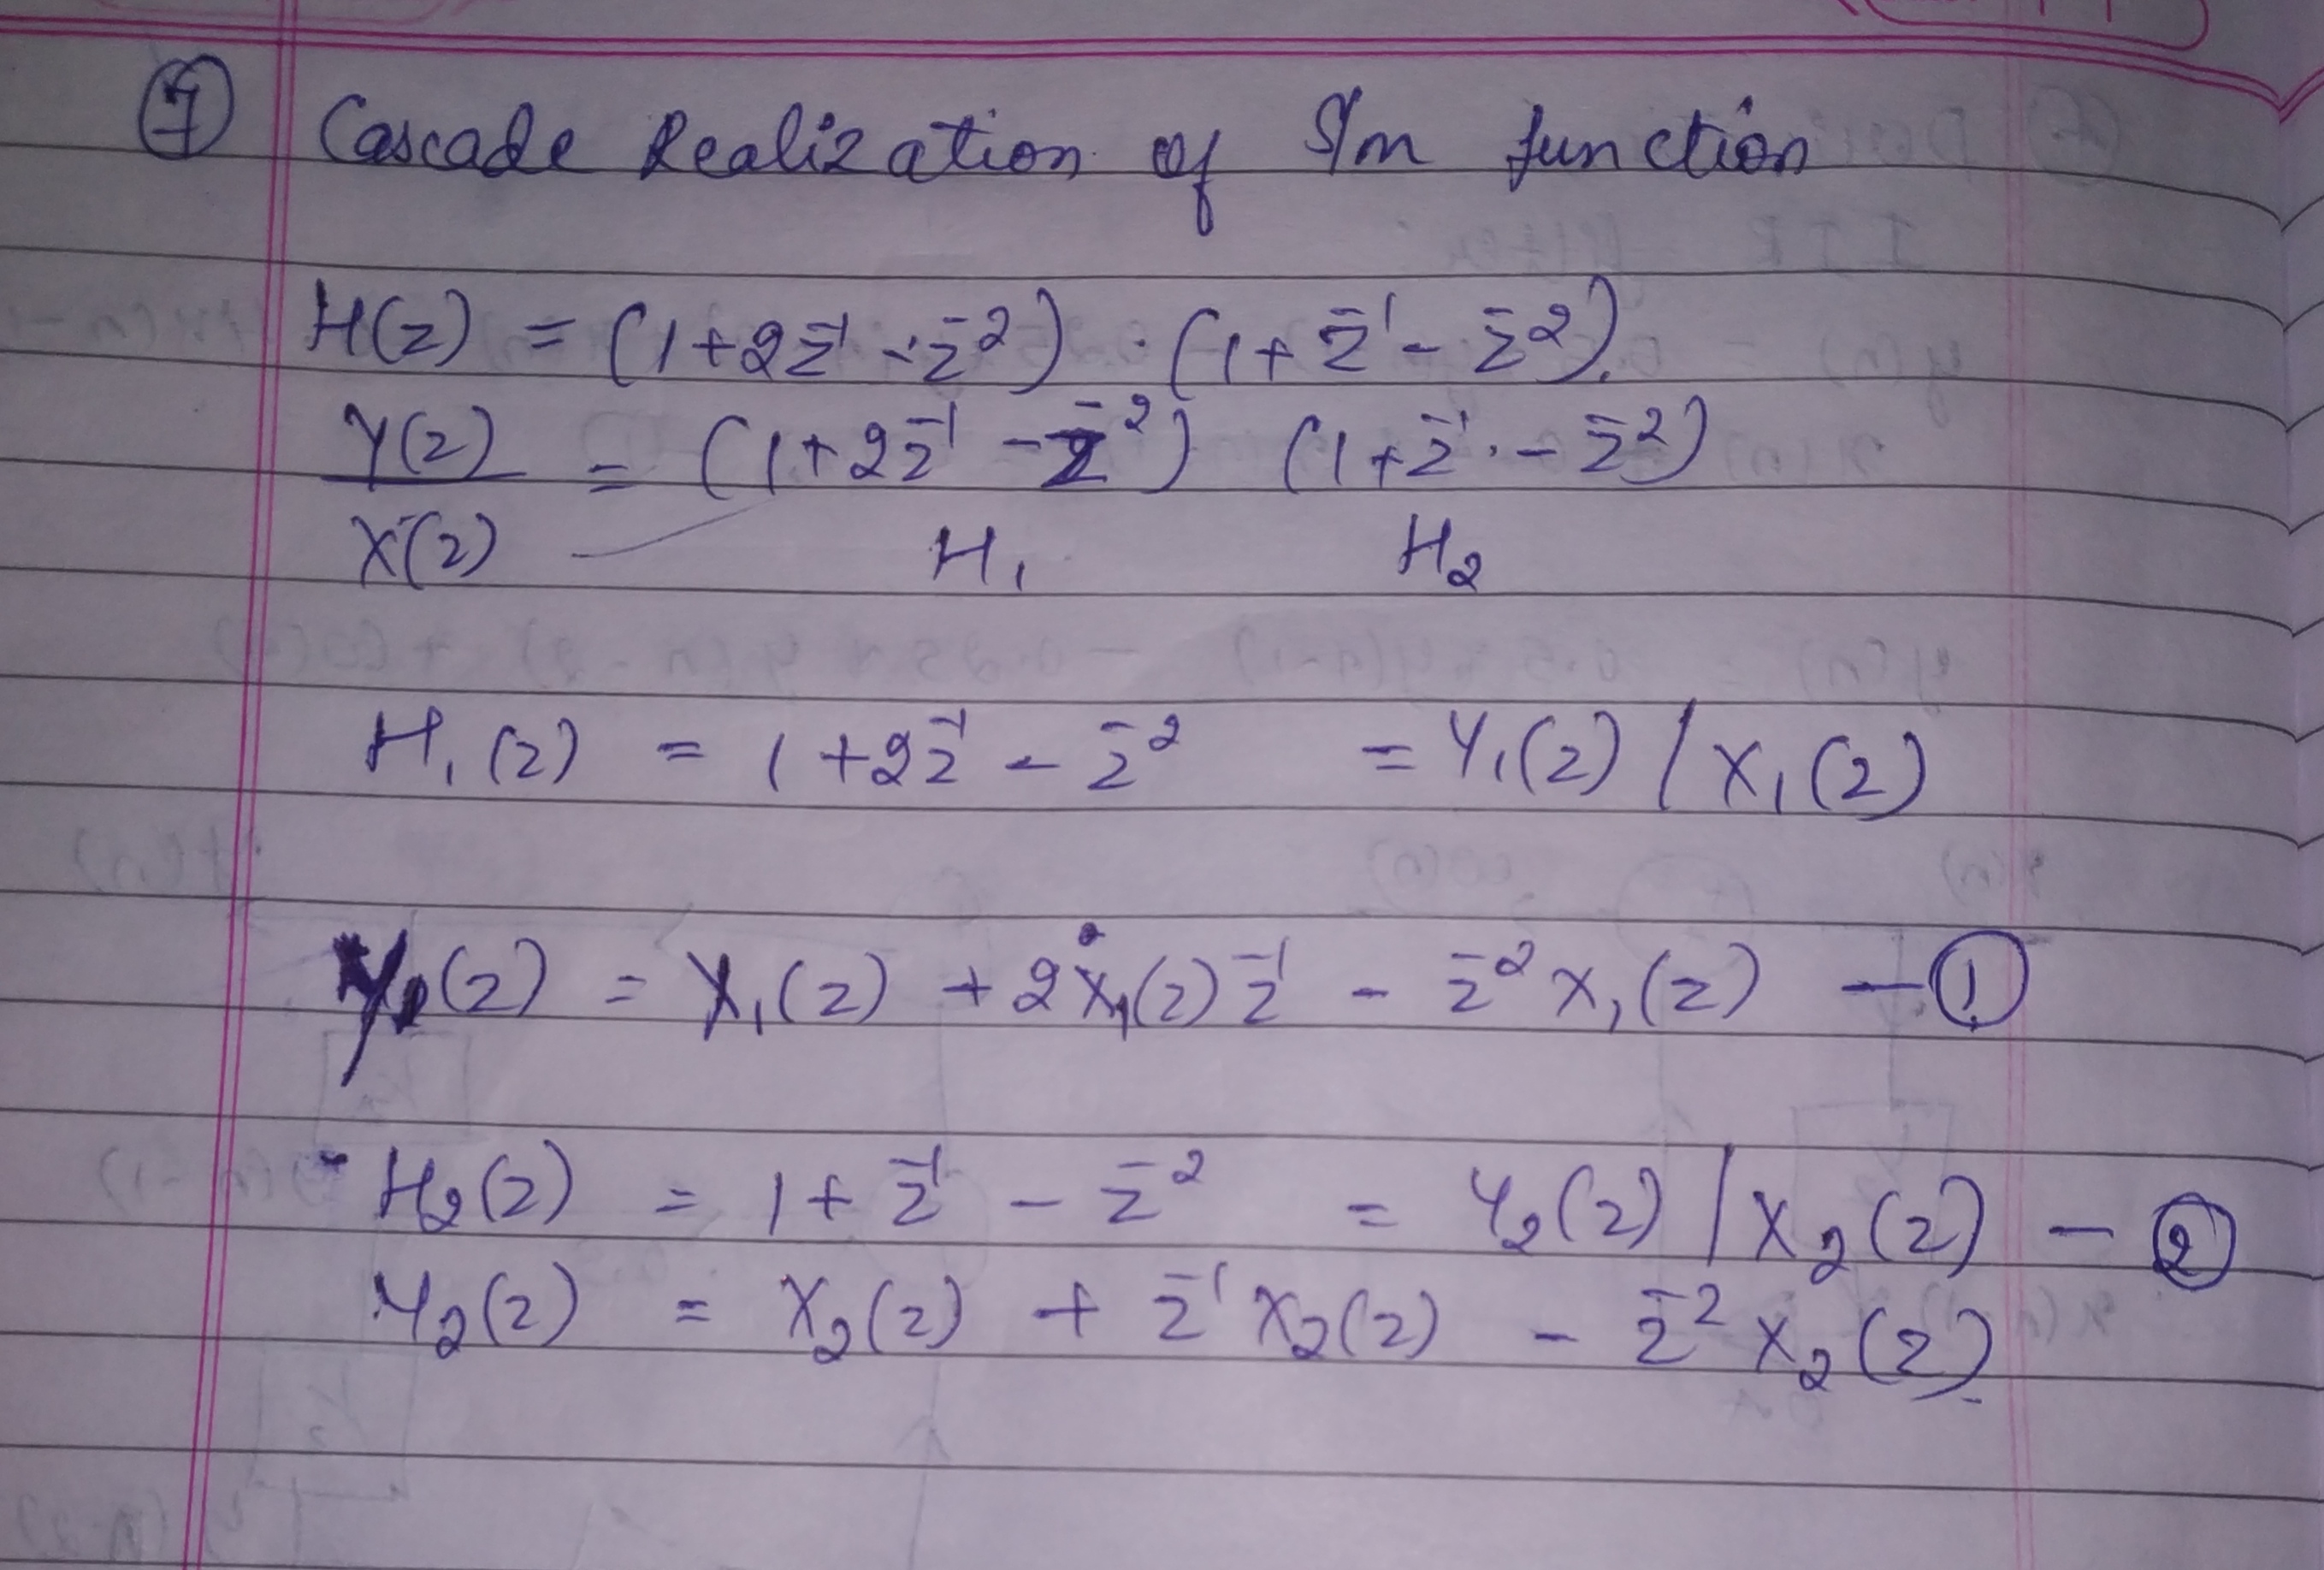 ⑦ Cascade Realization of S/m function
H(z) = (1+2z⁻¹ - z⁻²) · (1+z⁻¹ - z⁻²).
Y(z)/X(z) = (1+2z⁻¹ - z⁻²) (1+z⁻¹ - z⁻²)
H₁ H₂
H₁(z) = 1+2z⁻¹ - z⁻² = Y₁(z) / X₁(z)
Y₁(z) = X₁(z) + 2X₁(z)z⁻¹ - z⁻²X₁(z) — ①
H₂(z) = 1+z⁻¹ - z⁻² = Y₂(z) / X₂(z) — ②
Y₂(z) = X₂(z) + z⁻¹X₂(z) - z⁻²X₂(z)